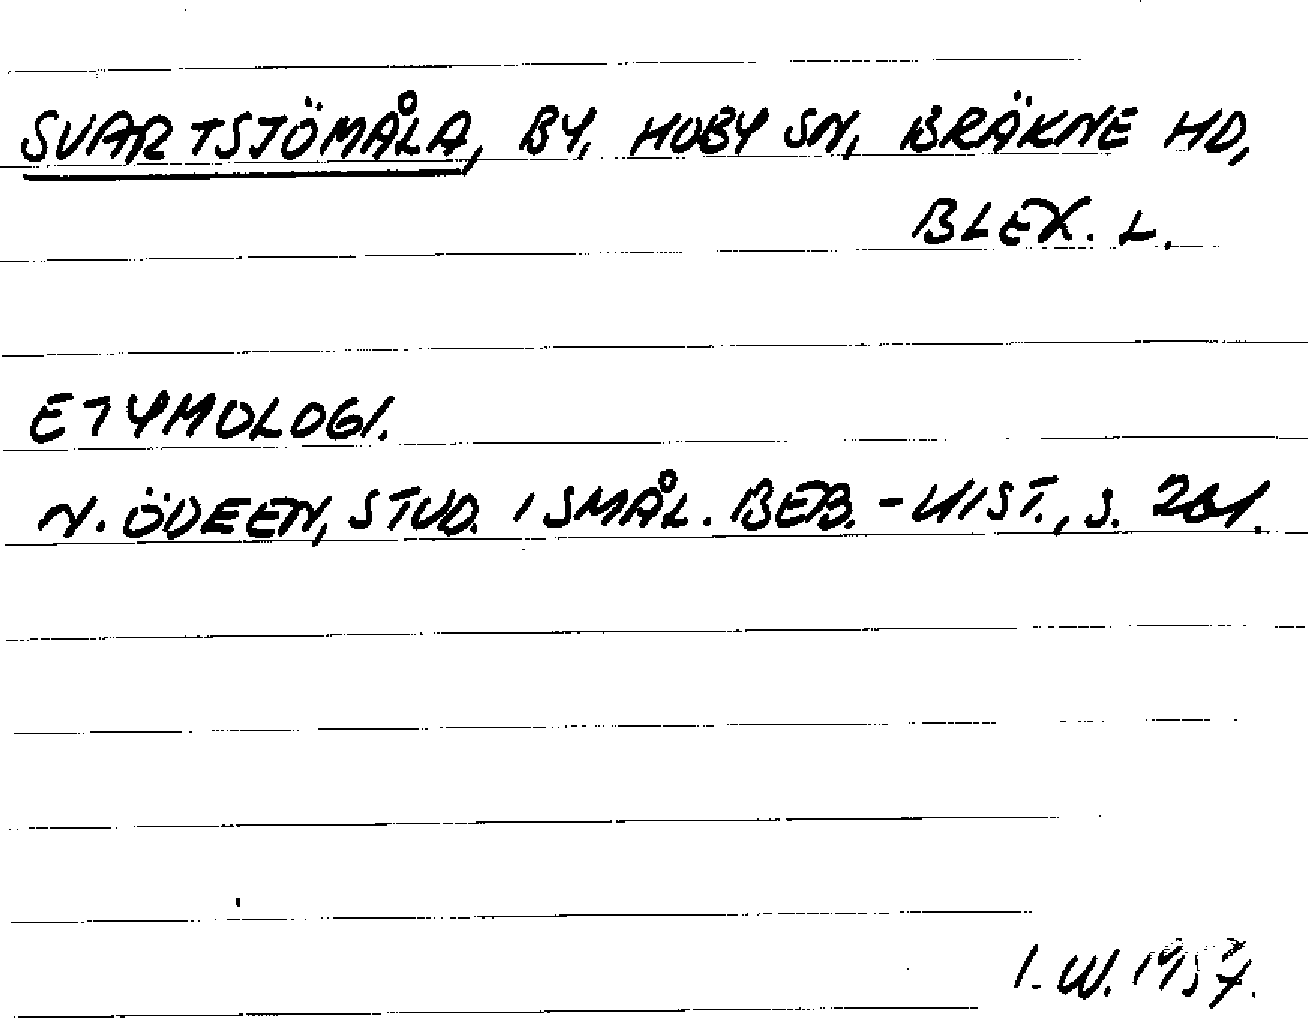 SVARTSJÖMÅLA, BY, HOBY SN, BRÄKNE HD,
BLEK. L.
ETYMOLOGI.
N. ÖDEEN, STUD. I SMÅL. BEB.-HIST., S. 261.
I. W. 1957.